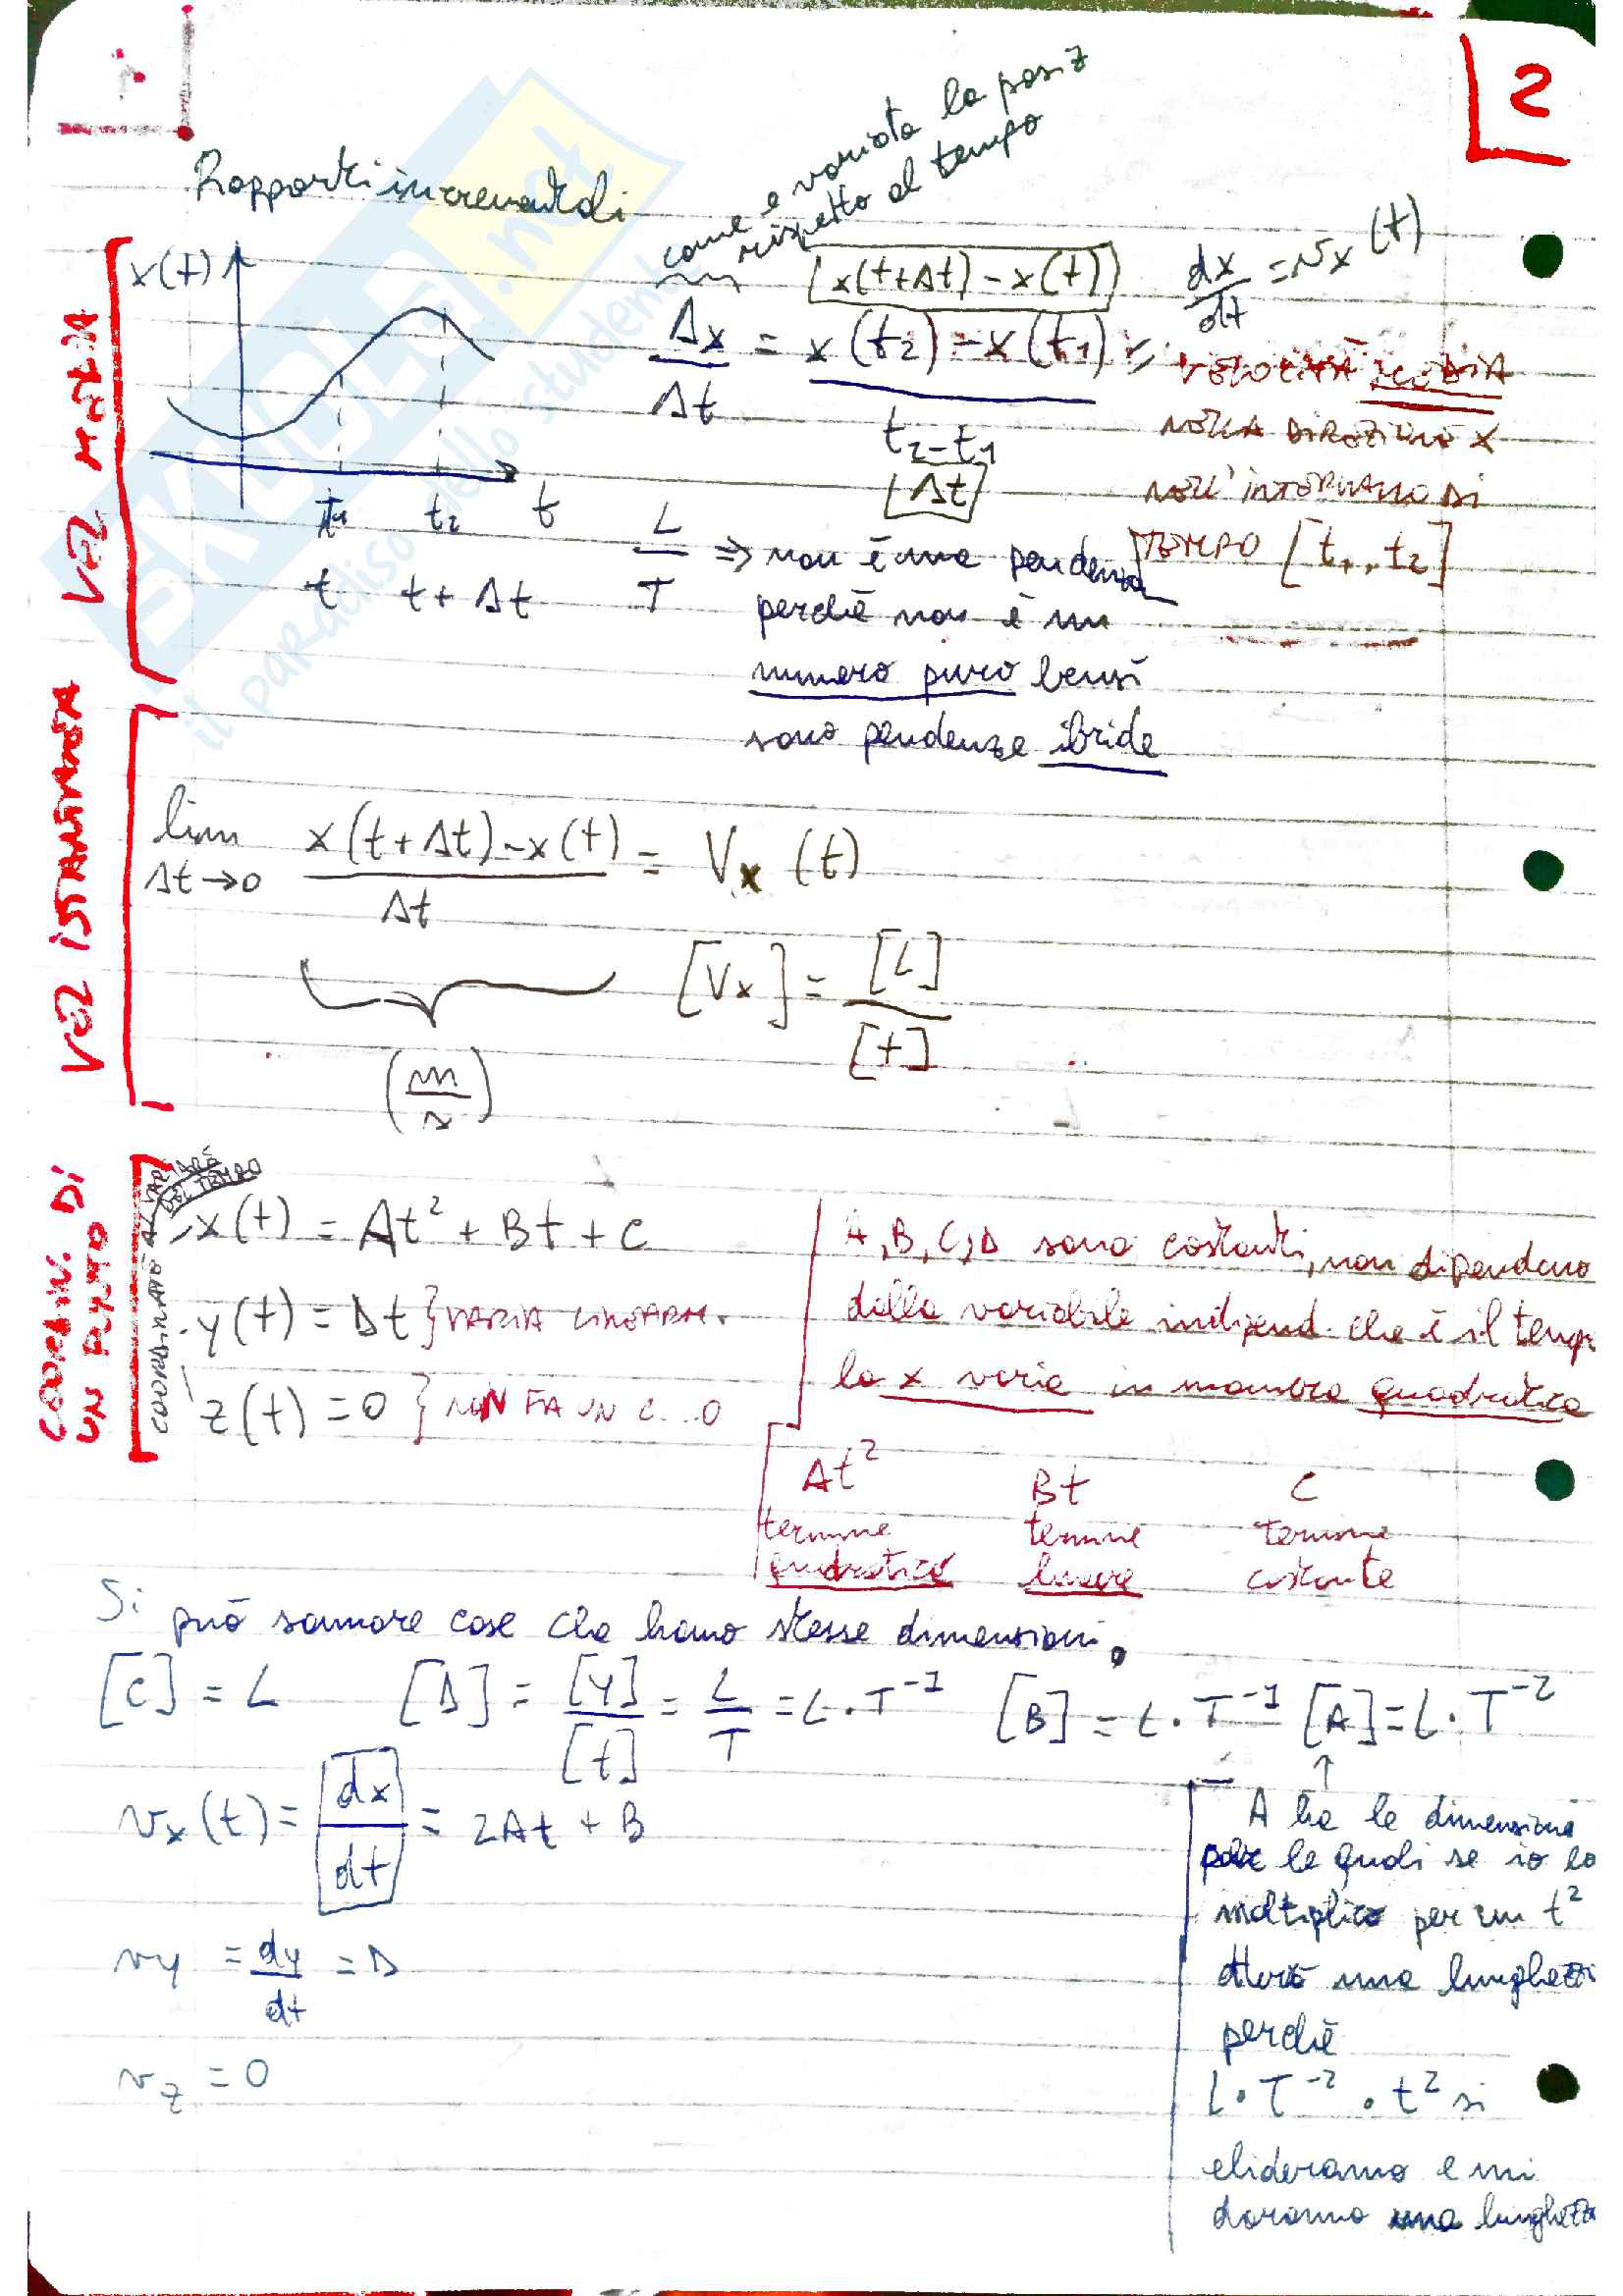 2
Rapporti incrementali
come è variata la posiz
rispetto al tempo
VEL MEDIA
x(t)
t1 t2 t
t t+Δt
[x(t+Δt)-x(t)]
Δx/Δt = x(t2)-x(t1) / t2-t1
[Δt]
dx/dt = vx(t)
VELOCITÀ MEDIA
NELLA DIREZIONE X
NELL'INTERVALLO DI
TEMPO [t1, t2]
L/T ⇒ non è una pendenza
perchè non è un
numero puro bensì
sono pendenze ibride
VEL ISTANTANEA
lim Δt→0 x(t+Δt)-x(t) / Δt = Vx(t)
[Vx] = [L]/[t]
(m/s)
COORDIN. DI
UN PUNTO
COORDINATE AL VARIARE
DEL TEMPO
x(t) = At² + Bt + C
y(t) = Dt } VARIA LINEARM.
z(t) = 0 } NON FA UN C...O
A, B, C, D sono costanti, non dipendono
dalla variabile indipend. che è il temp
la x varia in maniera quadratica
At² Bt C
termine termine termine
quadratico lineare costante
Si può sommare cose che hanno stesse dimensioni.
[C] = L [D] = [y]/[t] = L/T = L·T⁻¹ [B] = L·T⁻¹ [A] = L·T⁻²
vx(t) = dx/dt = 2At + B
vy = dy/dt = D
vz = 0
A ha le dimensioni
per le quali se io lo
moltiplico per un t²
otterò una lunghezz
perchè
L·T⁻²·t² si
elideranno e mi
daranno una lunghezz
SKUOLA.net
il paradiso dello studente